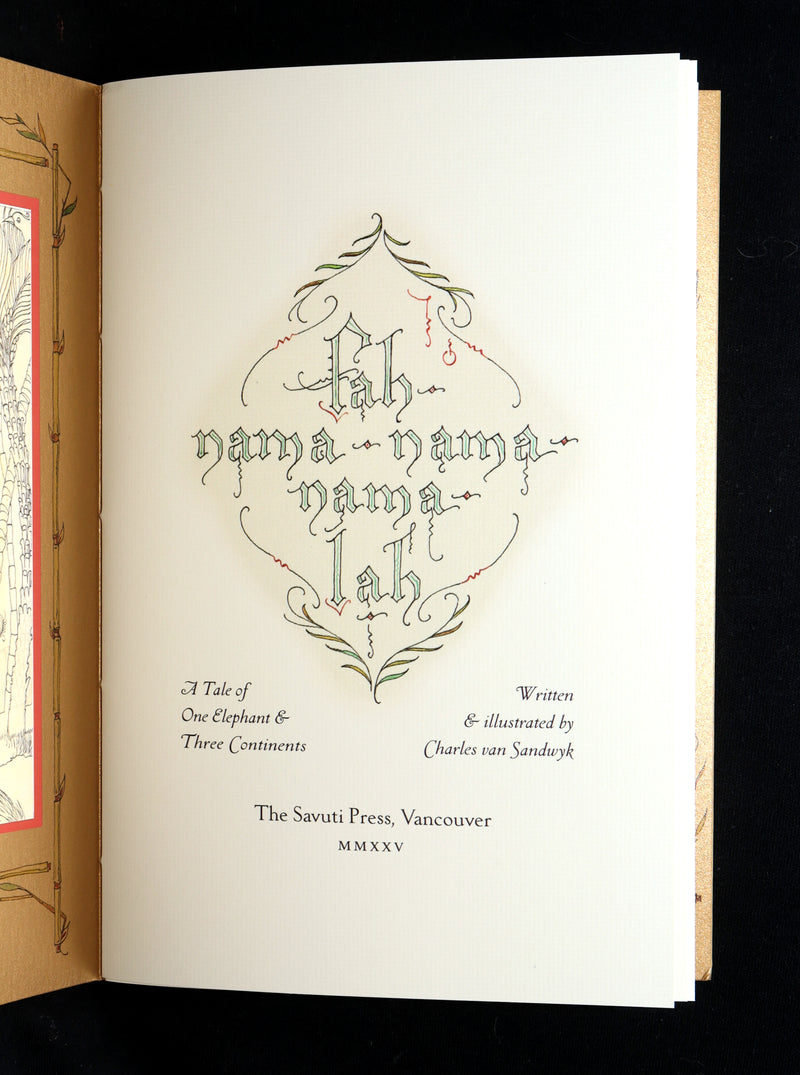 Fah-
nama-nama-
nama-
lah
A Tale of
One Elephant &
Three Continents
Written
& illustrated by
Charles van Sandwyk
The Savuti Press, Vancouver
MMXXV